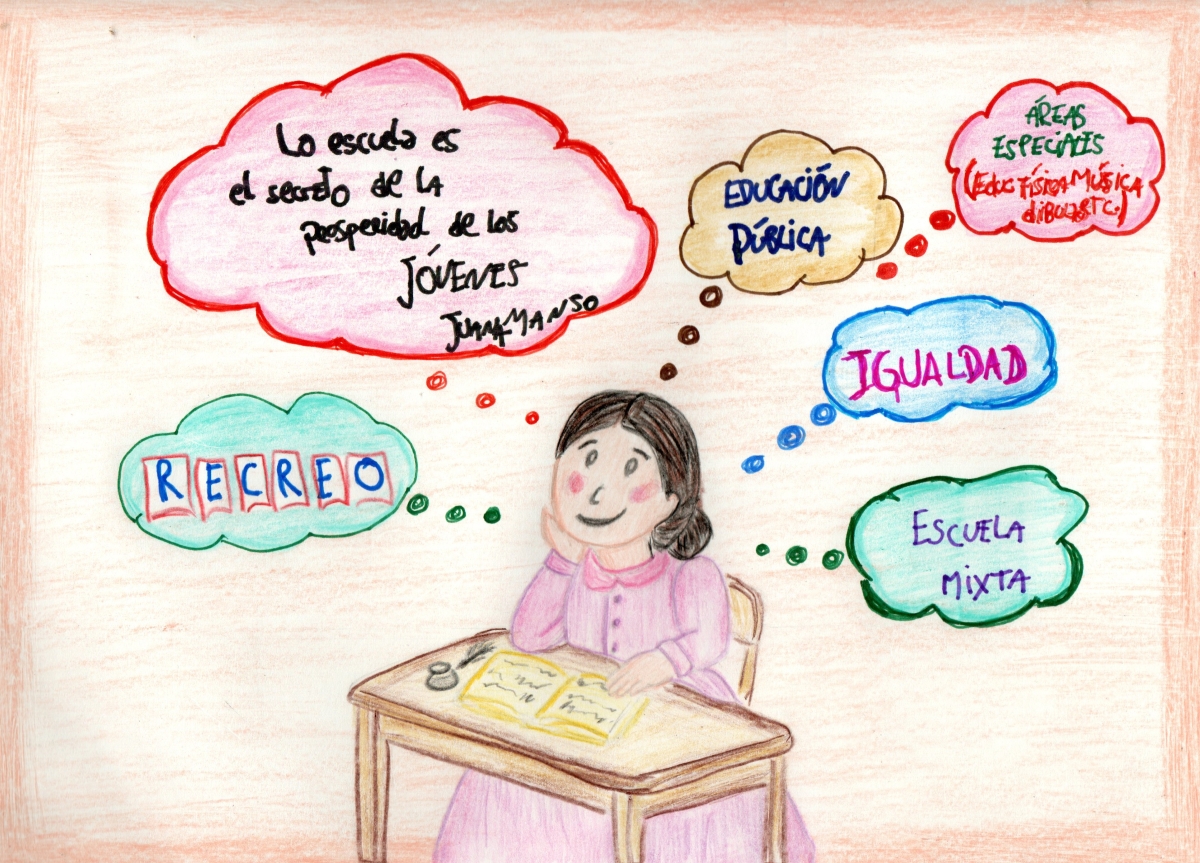 La escuela es
el secreto de la
prosperidad de los
JÓVENES
JUANA MANSO
EDUCACIÓN
PÚBLICA
ÁREAS
ESPECIALES
(EDUC FÍSICA MÚSICA
diBUJO ETC.)
IGUALDAD
RECREO
ESCUELA
MIXTA